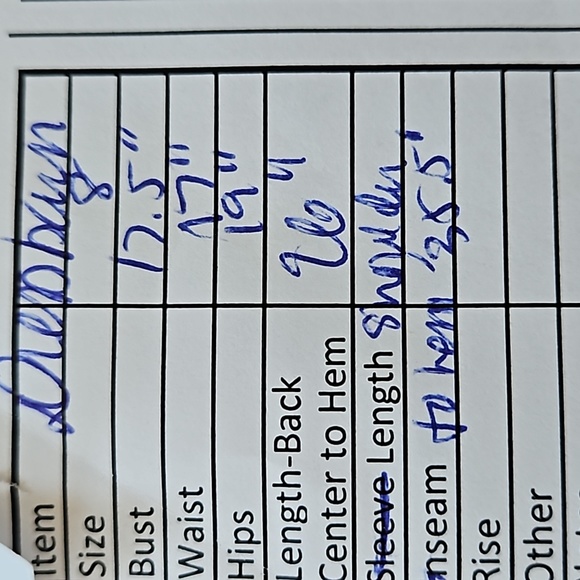 Item
Size 8
Bust 17.5"
Waist 17"
Hips 19"
Length-Back
Center to Hem 26"
Sleeve Length shoulder
nseam to hem 25.5"
Rise
Other